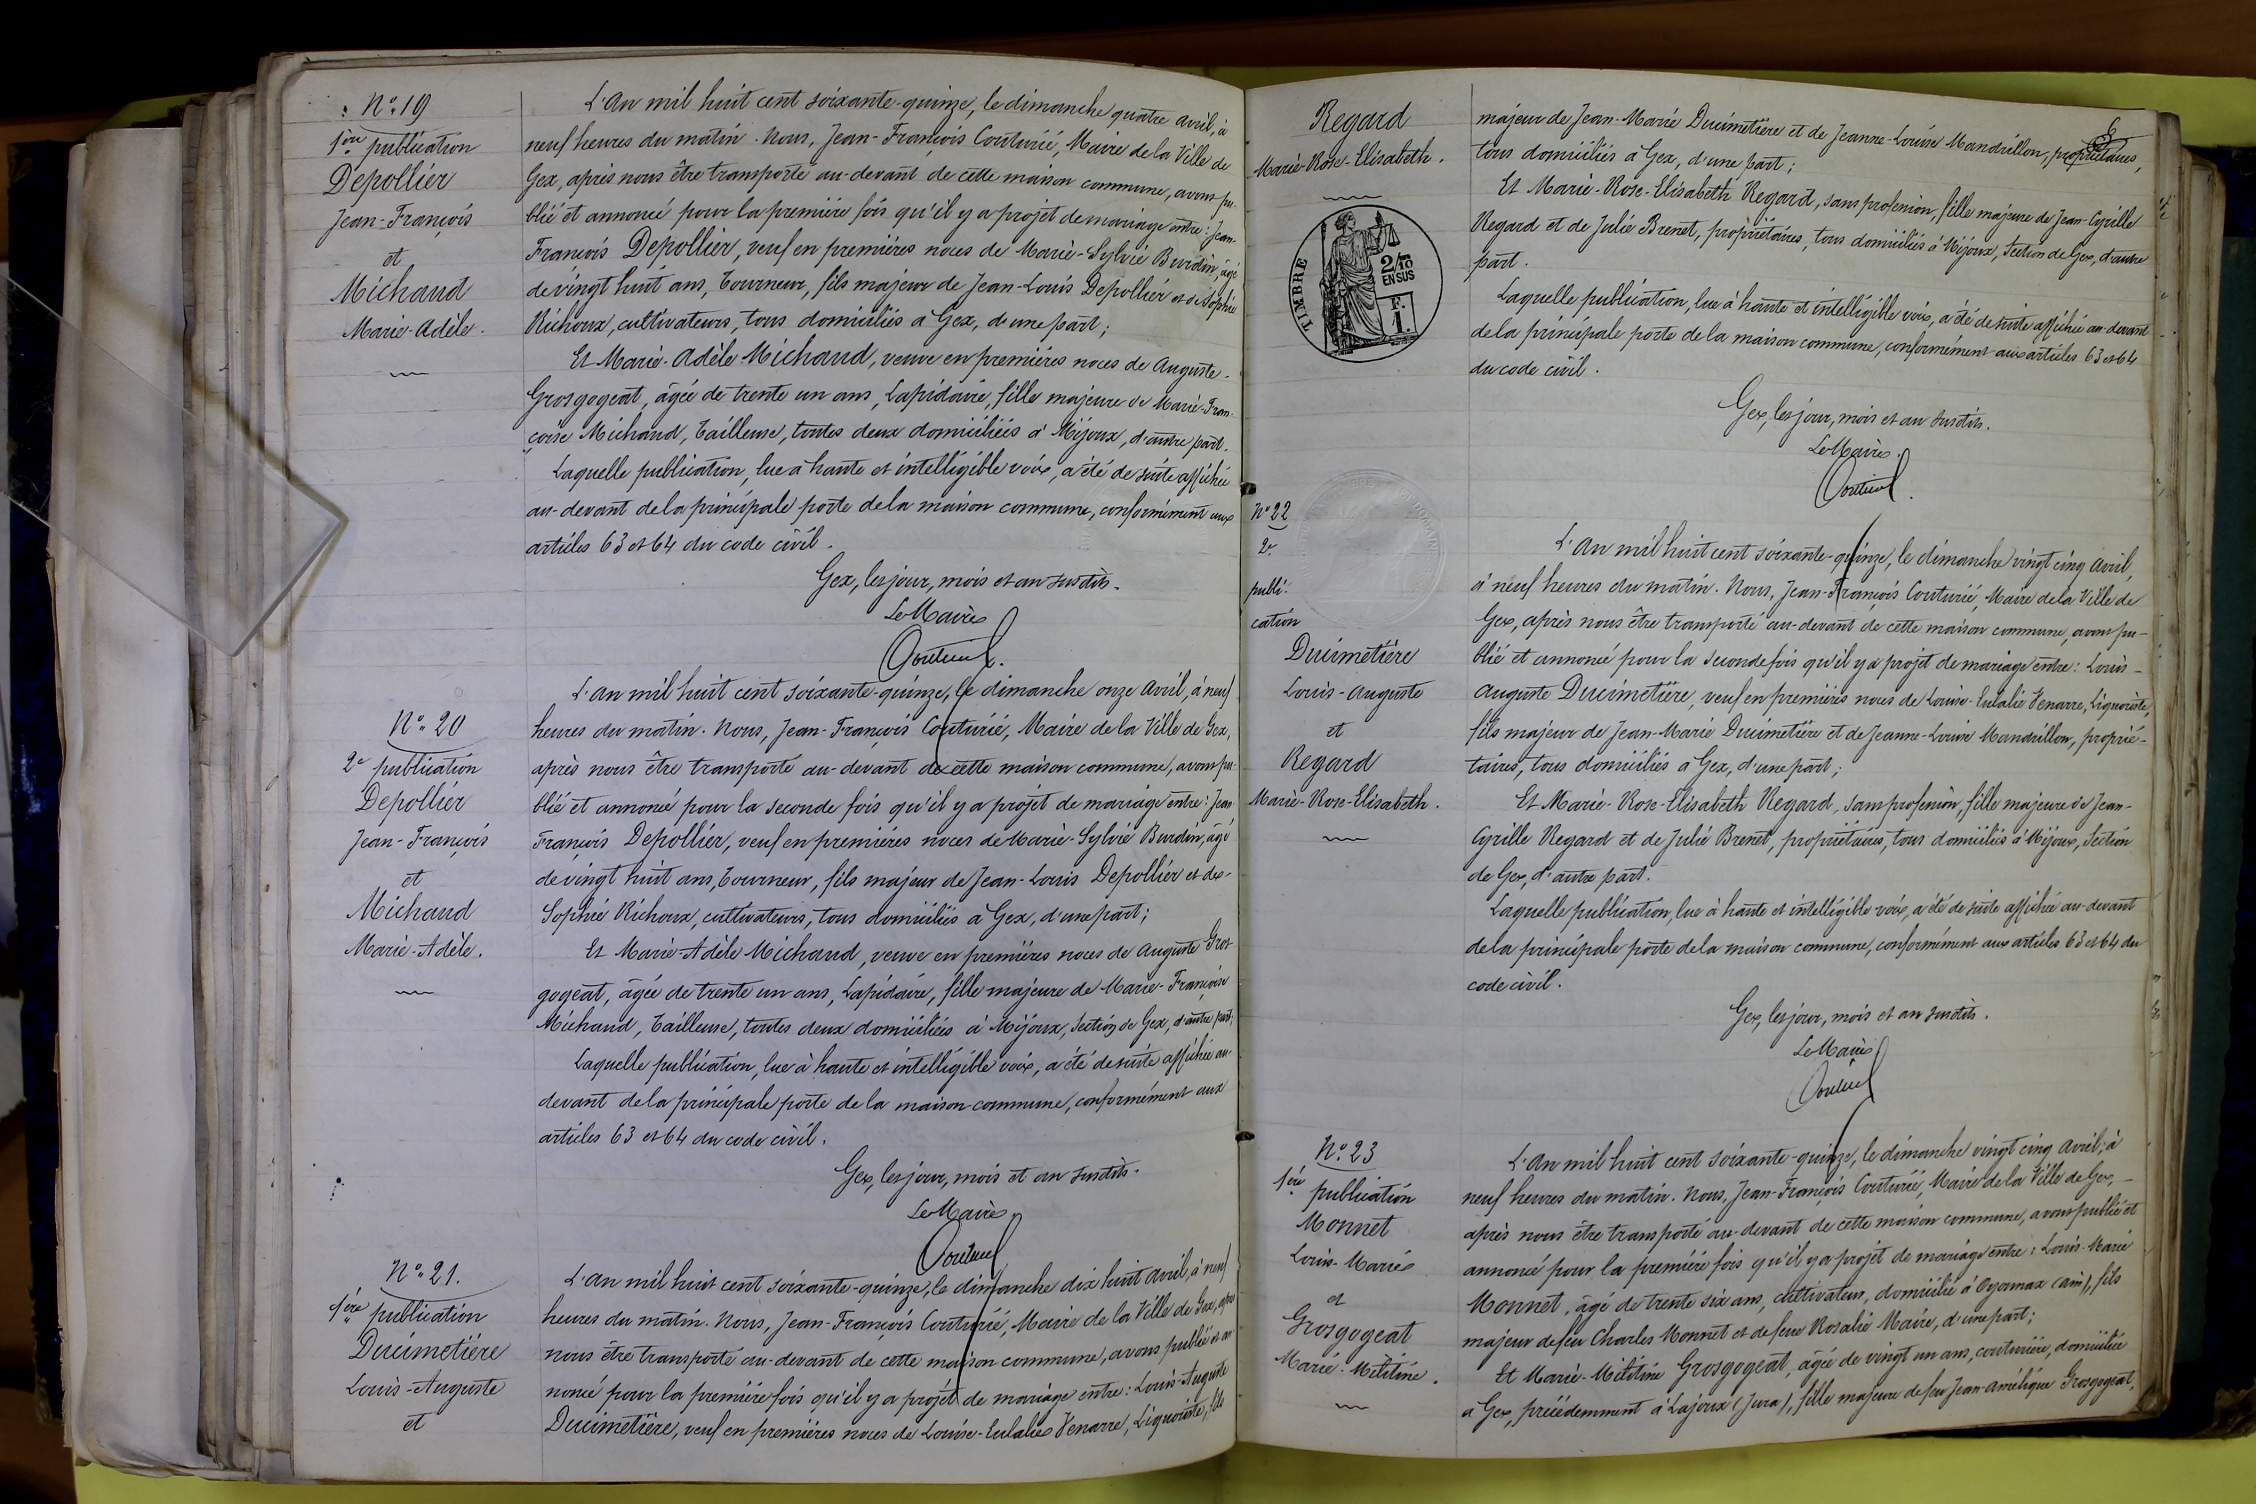 N° 19
1ère publication
Depollier
Jean-François
et
Michaud
Marie-Adèle.
L'An mil huit cent soixante-quinze, le dimanche quatre avril, à
neuf heures du matin. Nous, Jean-François Couturié, Maire de la Ville de
Gex, après nous être transporté au-devant de cette maison commune, avons pu-
blié et annoncé pour la première fois qu'il y a projet de mariage entre: Jean-
François Depollier, veuf en premières noces de Marie-Sylvie Burdin, âgé
de vingt huit ans, Tourneur, fils majeur de Jean-Louis Depollier et de Sophie
Richoux, cultivateurs, tous domiciliés à Gex, d'une part;
Et Marie-Adèle Michaud, veuve en premières noces de Auguste-
Grosgogeat, âgée de trente un ans, Lapidaire, fille majeure de Marie-Fran-
çoise Michaud, Tailleuse, toutes deux domiciliées à Mijoux, d'autre part.
Laquelle publication, lue à haute et intelligible voix, a été de suite affichée
au-devant de la principale porte de la maison commune, conformément aux
articles 63 et 64 du code civil.
Gex, les jour, mois et an susdits.
Le Maire
Couturié
N° 20
2e publication
Depollier
Jean-François
et
Michaud
Marie-Adèle.
L'An mil huit cent soixante-quinze, le dimanche onze Avril, à neuf
heures du matin. Nous, Jean-François Couturié, Maire de la Ville de Gex,
après nous être transporté au-devant de cette maison commune, avons pu-
blié et annoncé pour la seconde fois qu'il y a projet de mariage entre: Jean
François Depollier, veuf en premières noces de Marie-Sylvie Burdin, âgé
de vingt huit ans, Tourneur, fils majeur de Jean-Louis Depollier et de-
Sophie Richoux, cultivateurs, tous domiciliés à Gex, d'une part;
Et Marie-Adèle Michaud, veuve en premières noces de Auguste Gros-
gogeat, âgée de trente un ans, Lapidaire, fille majeure de Marie-Françoise
Michaud, Tailleuse, toutes deux domiciliées à Mijoux, Section de Gex, d'autre part;
Laquelle publication, lue à haute et intelligible voix, a été de suite affichée au-
devant de la principale porte de la maison commune, conformément aux
articles 63 et 64 du code civil.
Gex, les jour, mois et an susdits.
Le Maire
Couturié
N° 21.
1ère publication
Ducimetière
Louis-Auguste
et
L'An mil huit cent soixante-quinze, le dimanche dix huit avril, à neuf
heures du matin. Nous, Jean-François Couturié, Maire de la Ville de Gex, après
nous être transporté au-devant de cette maison commune, avons publié et an
noncé pour la première fois qu'il y a projet de mariage entre: Louis-Auguste
Ducimetière, veuf en premières noces de Louise-Eulalie Venarre, Liquoriste, fils
Regard
Marie-Rose-Elisabeth.
TIMBRE
2/10
EN SUS
F.
1.
majeur de Jean-Marie Ducimetière et de Jeanne-Louise Mandrillon, propriétaires,
tous domiciliés à Gex, d'une part;
Et Marie-Rose-Elisabeth Regard, sans profession, fille majeure de Jean-Cyrille
Regard et de Julie Brenet, propriétaires, tous domiciliés à Mijoux, Section de Gex, d'autre
part.
Laquelle publication, lue à haute et intelligible voix, a été de suite affichée au-devant
de la principale porte de la maison commune, conformément aux articles 63 et 64
du code civil.
Gex, les jour, mois et an susdits.
Le Maire.
Couturié
N° 22
2e
publi-
cation
Ducimetière
Louis-Auguste
et
Regard
Marie-Rose-Elisabeth.
L'An mil huit cent soixante-quinze, le dimanche vingt cinq avril,
à neuf heures du matin. Nous, Jean-François Couturié, Maire de la Ville de
Gex, après nous être transporté au-devant de cette maison commune, avons pu-
blié et annoncé pour la seconde fois qu'il y a projet de mariage entre: Louis-
Auguste Ducimetière, veuf en premières noces de Louise-Eulalie Venarre, Liquoriste,
fils majeur de Jean-Marie Ducimetière et de Jeanne-Louise Mandrillon, proprié-
taires, tous domiciliés à Gex, d'une part;
Et Marie-Rose-Elisabeth Regard, sans profession, fille majeure de Jean-
Cyrille Regard et de Julie Brenet, propriétaires, tous domiciliés à Mijoux, Section
de Gex, d'autre part.
Laquelle publication, lue à haute et intelligible voix, a été de suite affichée au-devant
de la principale porte de la maison commune, conformément aux articles 63 et 64 du
code civil.
Gex, les jour, mois et an susdits.
Le Maire
Couturié
N° 23
1ère publication
Monnet
Louis-Marie
et
Grosgogeat
Marie-Mélitine.
L'An mil huit cent soixante-quinze, le dimanche vingt cinq avril, à
neuf heures du matin. Nous, Jean-François Couturié, Maire de la Ville de Gex,-
après nous être transporté au-devant de cette maison commune, avons publié et
annoncé pour la première fois qu'il y a projet de mariage entre: Louis-Marie
Monnet, âgé de trente six ans, cultivateur, domicilié à Oyonnax (ain), fils
majeur de feu Charles Monnet et de feue Rosalie Maire, d'une part;
Et Marie-Mélitine Grosgogeat, âgée de vingt un ans, couturière, domiciliée
à Gex, précédemment à Lajoux (Jura), fille majeure de feu Jean-Amélique Grosgogeat,